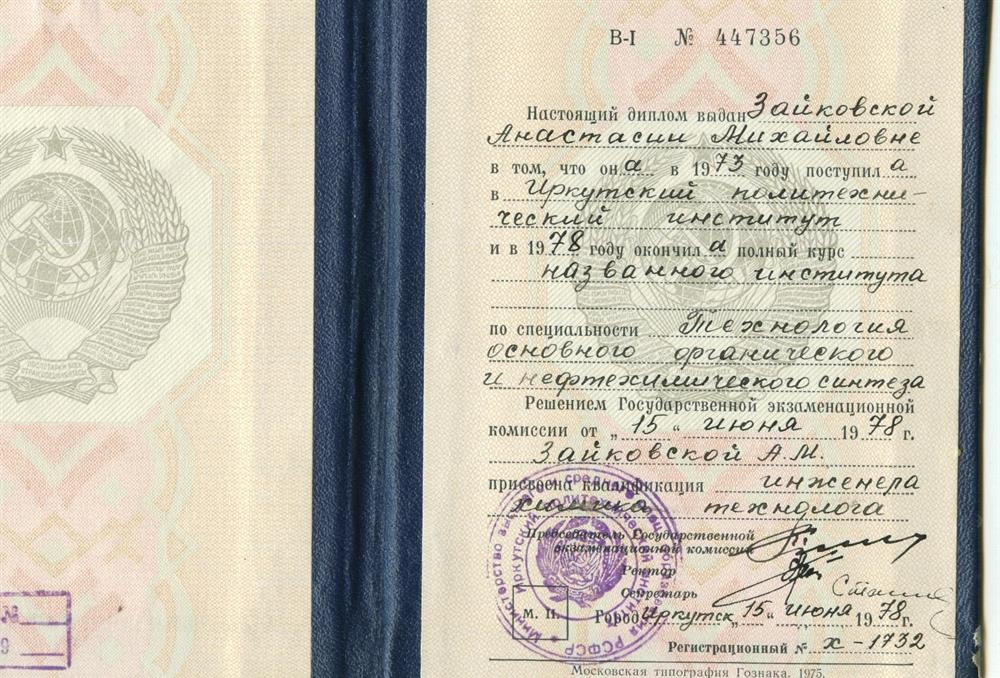 В-I № 447356
Настоящий диплом выдан Зайковской
Анастасии Михайловне
в том, что она в 1973 году поступила
в Иркутский политехни-
ческий институт
и в 1978 году окончила полный курс
названного института
по специальности Технология
основного органического
и нефтехимического синтеза
Решением Государственной экзаменационной
комиссии от „15“ июня 1978 г.
Зайковской А.М.
присвоена квалификация инженера
химика технолога
Председатель Государственной
экзаменационной комиссии
Ректор
Секретарь
М. П.
Город Иркутск „15“ июня 1978 г.
Регистрационный № х-1732
Московская типография Гознака. 1975.
№
9